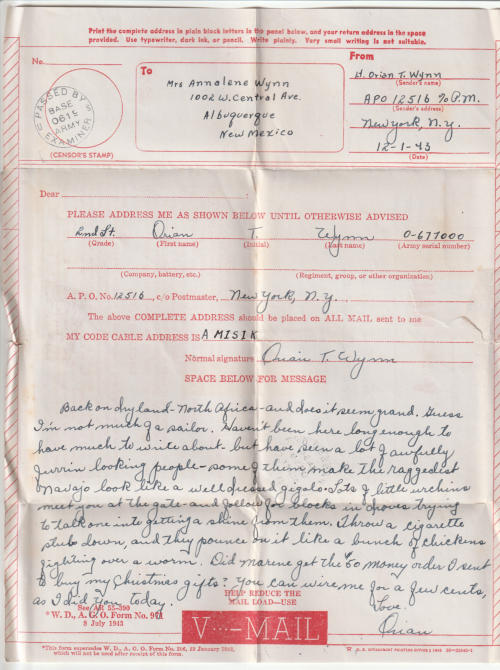 Print the complete address in plain block letters in the panel below, and your return address in the space
provided. Use typewriter, dark ink, or pencil. Write plainly. Very small writing is not suitable.
No.
PASSED BY
BASE
0615
ARMY
EXAMINER
(CENSOR'S STAMP)
To
Mrs Annalene Wynn
1002 W. Central Ave.
Albuquerque
New Mexico
From
Lt. Orian T. Wynn
(Sender's name)
APO 12516 % P.M.
(Sender's address)
New York, N.Y.
12-1-43
(Date)
Dear
PLEASE ADDRESS ME AS SHOWN BELOW UNTIL OTHERWISE ADVISED
2nd Lt. Orian T. Wynn O-677000
(Grade) (First name) (Initial) (Last name) (Army serial number)
(Company, battery, etc.) (Regiment, group, or other organization)
A. P. O. No. 12516, c/o Postmaster, New York, N.Y.
The above COMPLETE ADDRESS should be placed on ALL MAIL sent to me
MY CODE CABLE ADDRESS IS AMISIK
Normal signature Orian T. Wynn
SPACE BELOW FOR MESSAGE
Back on dry land-North Africa-and does it seem grand. Guess
I'm not much of a sailor. Haven't been here long enough to
have much to write about. but have seen a lot of awferly
furrin looking people-some of them make the raggedest
Navajo look like a well dressed gigolo. Lots of little urchins
meet you at the gate-and follow for blocks in droves trying
to talk one into getting a shine from them. Throw a cigarette
stub down, and they pounce on it like a bunch of chickens
fighting over a worm. Did marene get the 60 money order I sent
to buy my Christmas gifts? You can wire me for a few cents,
as I did you today. Love.
Orian
HELP REDUCE THE
MAIL LOAD—USE
See AR 55-390
*W. D., A. G. O. Form No. 971
8 July 1943
V···-MAIL
*This form supersedes W. D., A. G. O. Form No. 206, 19 January 1943,
which will not be used after receipt of this form.
U. S. GOVERNMENT PRINTING OFFICE : 1943